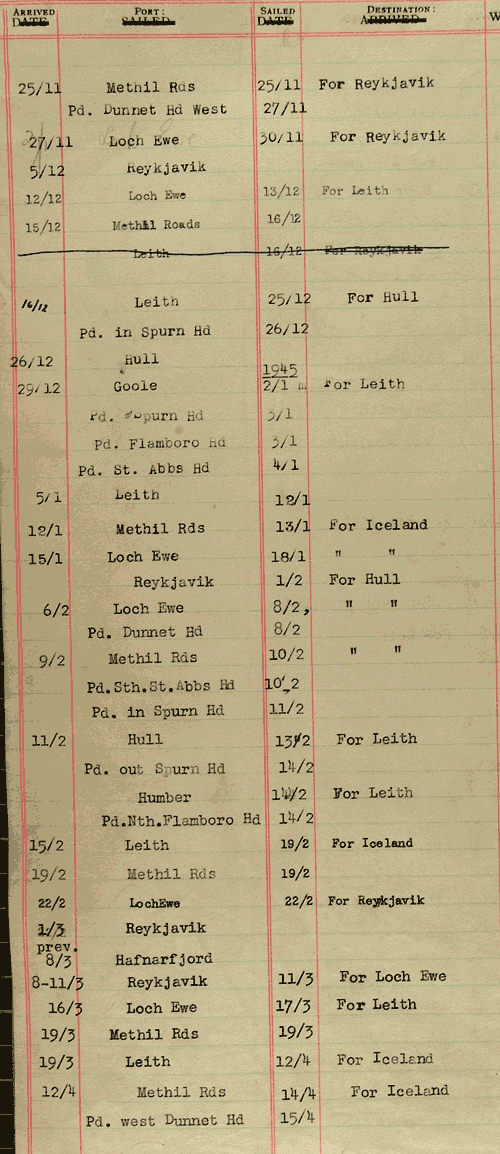 ARRIVED PORT: SAILED DESTINATION:
DATE SAILED DATE ARRIVED W
25/11 Methil Rds 25/11 For Reykjavik
Pd. Dunnet Hd West 27/11
27/11 Loch Ewe 30/11 For Reykjavik
5/12 Reykjavik
12/12 Loch Ewe 13/12 For Leith
15/12 Methil Roads 16/12
Leith 16/12 For Reykjavik
16/12 Leith 25/12 For Hull
Pd. in Spurn Hd 26/12
26/12 Hull
1945
29/12 Goole 2/1 For Leith
Pd. Spurn Hd 3/1
Pd. Flamboro Hd 3/1
Pd. St. Abbs Hd 4/1
5/1 Leith 12/1
12/1 Methil Rds 13/1 For Iceland
15/1 Loch Ewe 18/1 " "
Reykjavik 1/2 For Hull
6/2 Loch Ewe 8/2, " "
Pd. Dunnet Hd 8/2
9/2 Methil Rds 10/2 " "
Pd.Sth.St.Abbs Hd 10/2
Pd. in Spurn Hd 11/2
11/2 Hull 13/2 For Leith
Pd. out Spurn Hd 14/2
Humber 14/2 For Leith
Pd.Nth.Flamboro Hd 14/2
15/2 Leith 19/2 For Iceland
19/2 Methil Rds 19/2
22/2 LochEwe 22/2 For Reykjavik
1/3 Reykjavik
prev.
8/3 Hafnarfjord
8-11/3 Reykjavik 11/3 For Loch Ewe
16/3 Loch Ewe 17/3 For Leith
19/3 Methil Rds 19/3
19/3 Leith 12/4 For Iceland
12/4 Methil Rds 14/4 For Iceland
Pd. west Dunnet Hd 15/4